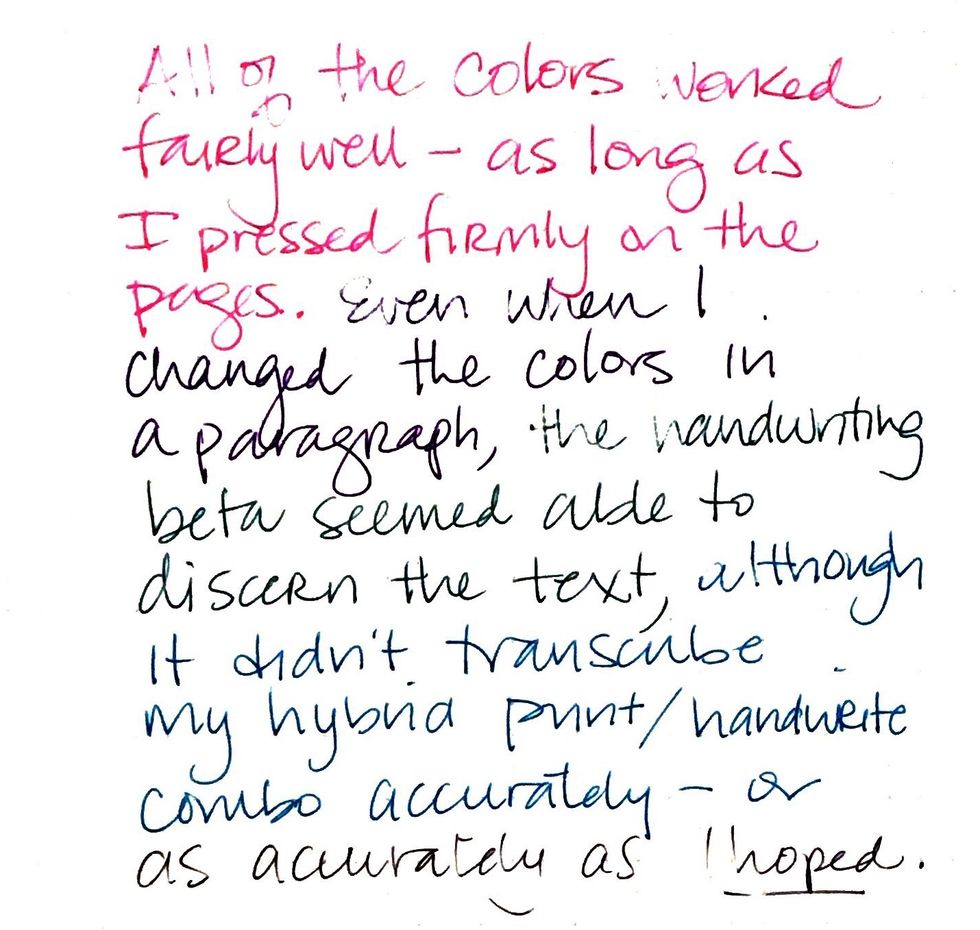 All of the colors worked
fairly well – as long as
I pressed firmly on the
pages. Even when I
changed the colors in
a paragraph, the handwriting
beta seemed able to
discern the text, although
it didn't transcribe
my hybrid print/handwrite
combo accurately – or
as accurately as I hoped.